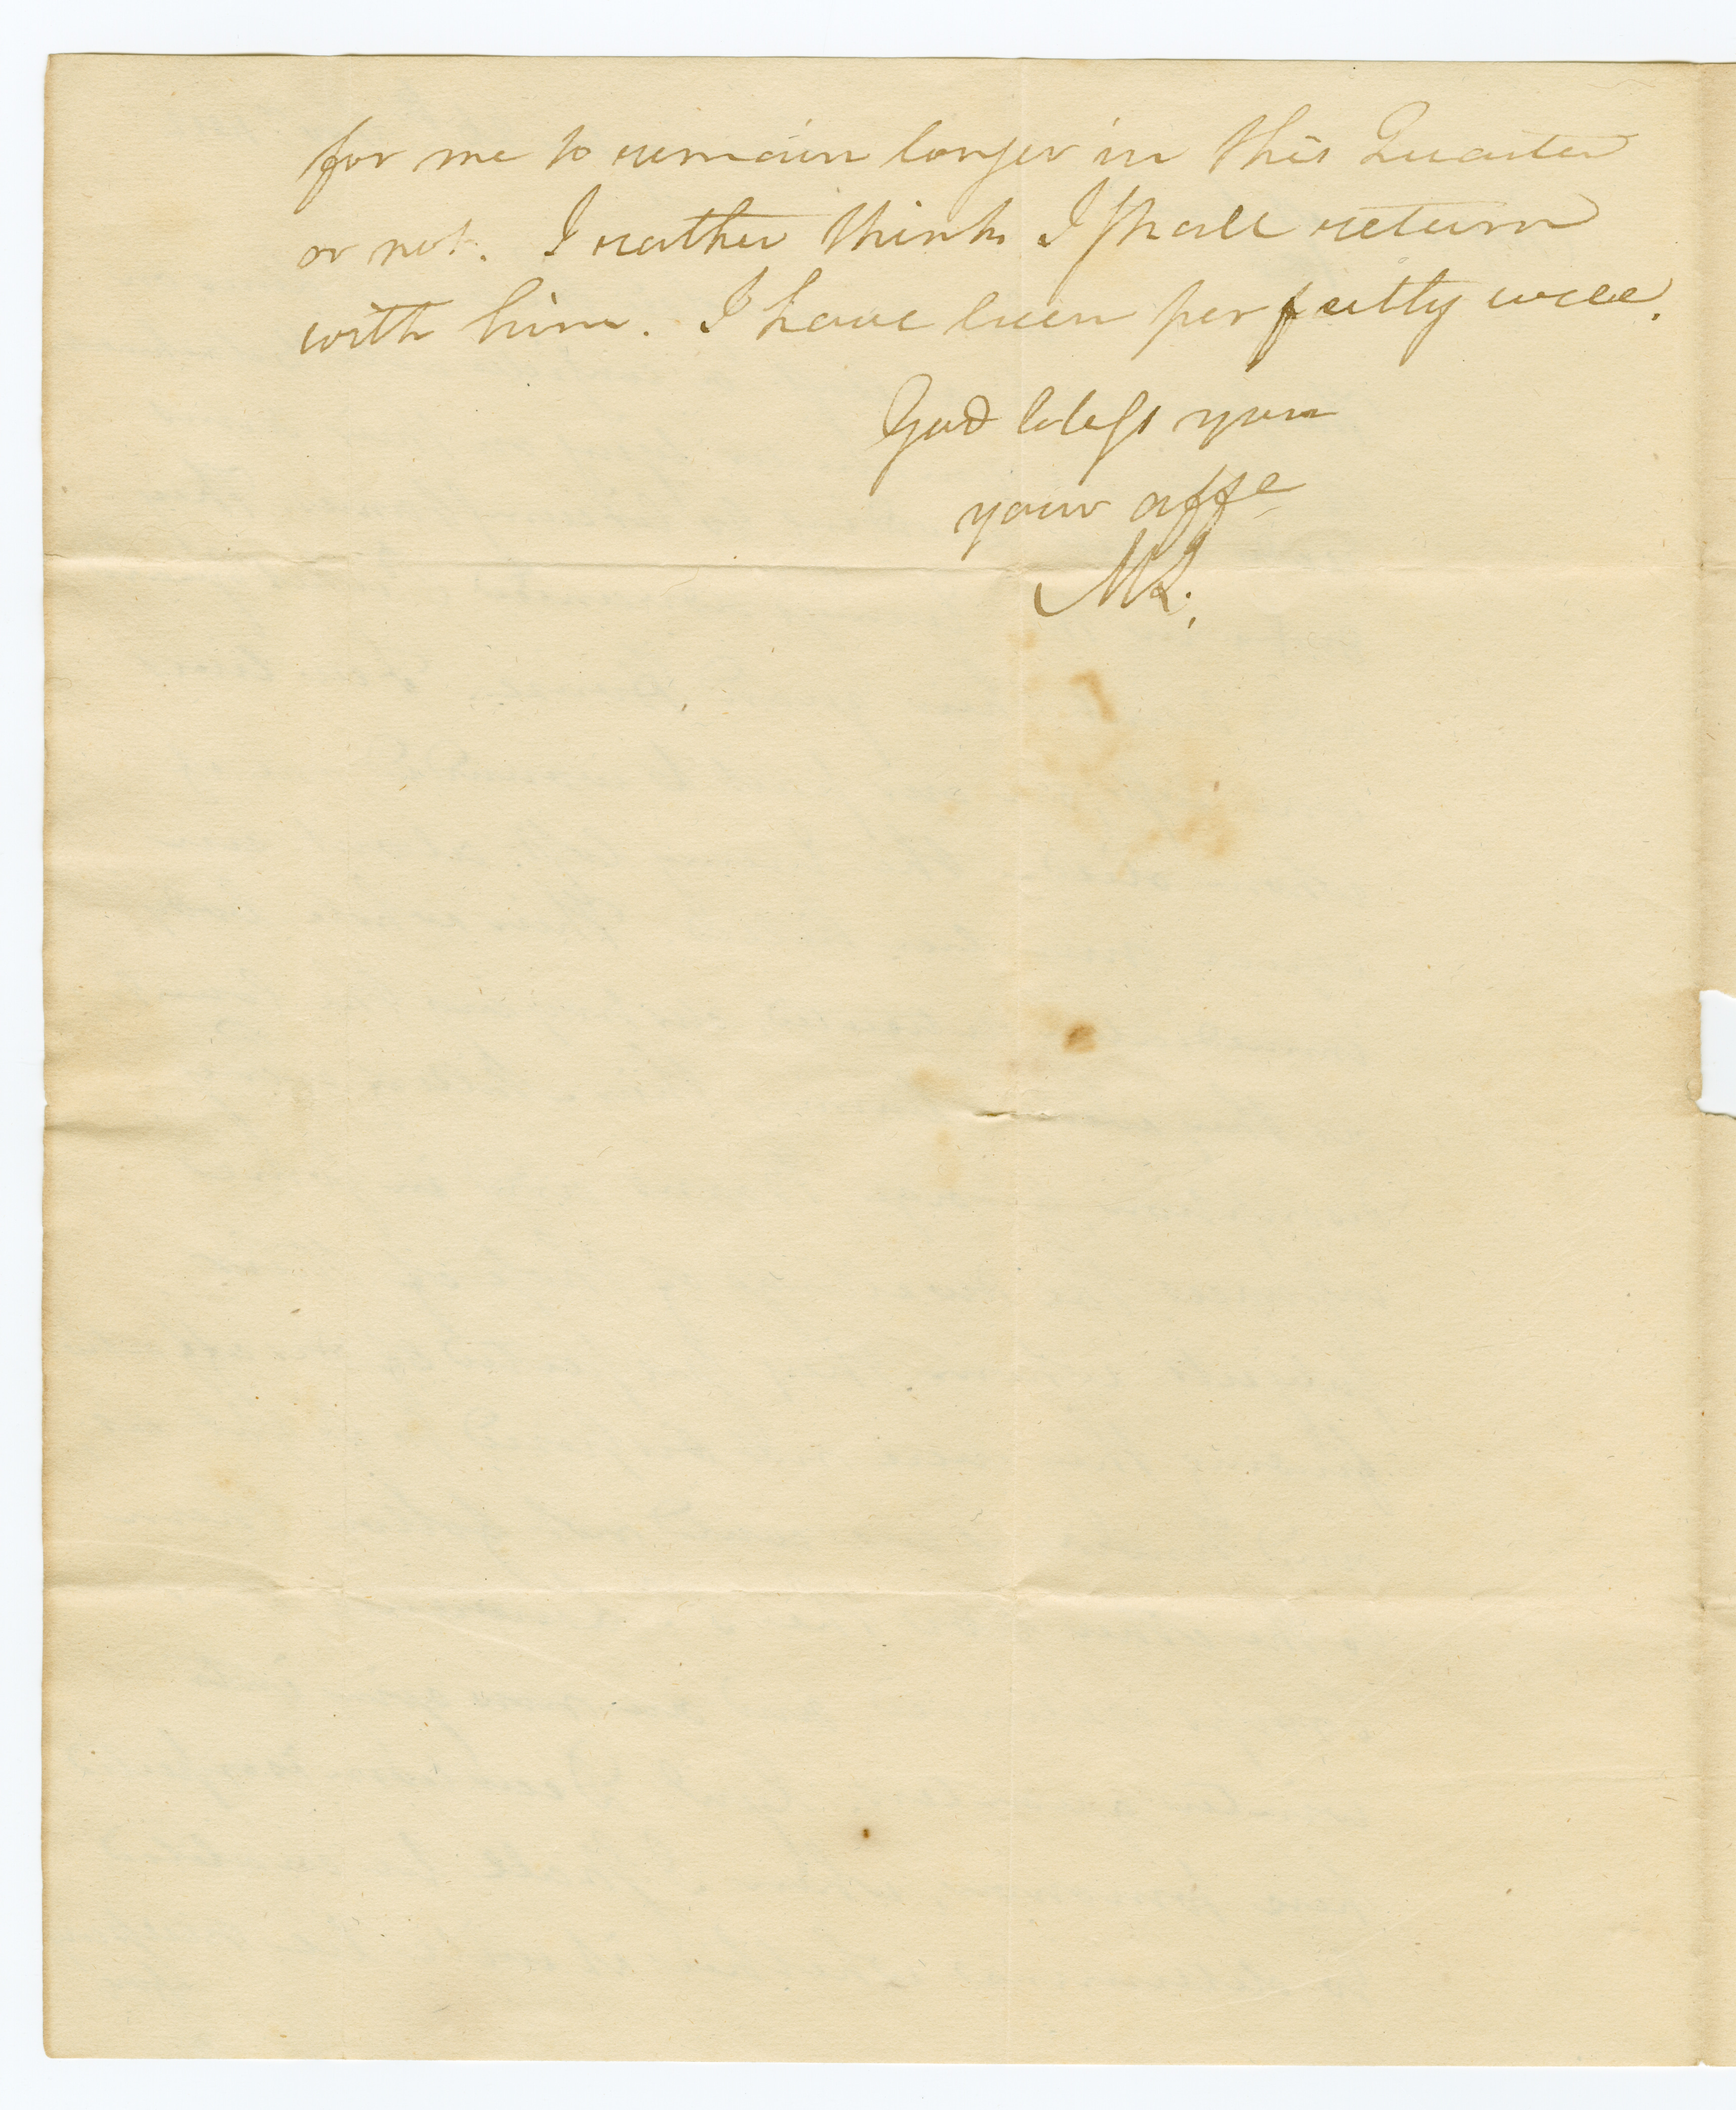 for me to remain longer in this Quarter
or not. I rather think I shall return
with him. I have been perfectly well.
God bless you
your affe
ML.